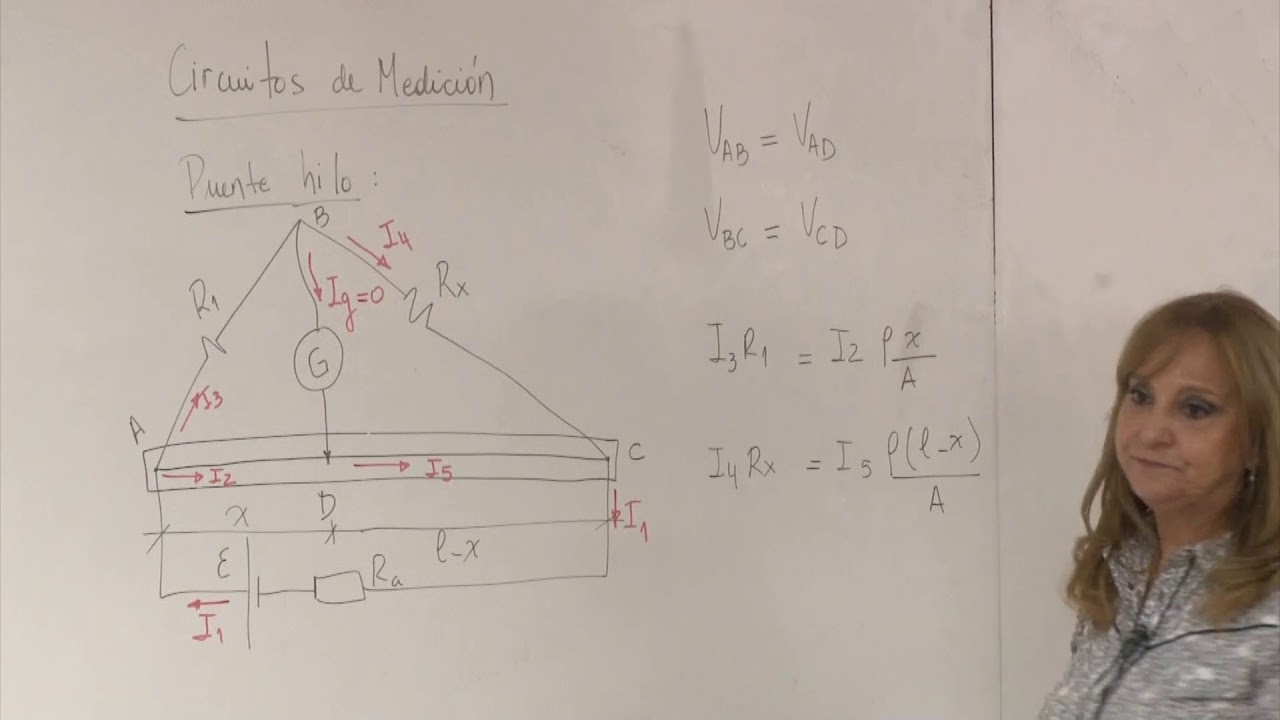 Circuitos de Medición
Puente hilo:
B
I4
R1
Ig=0
Rx
G
I3
A
C
I2
I5
x
D
l-x
I1
ε
Ra
I1
VAB = VAD
VBC = VCD
I3R1 = I2 ρ x/A
I4Rx = I5 ρ(l-x)/A